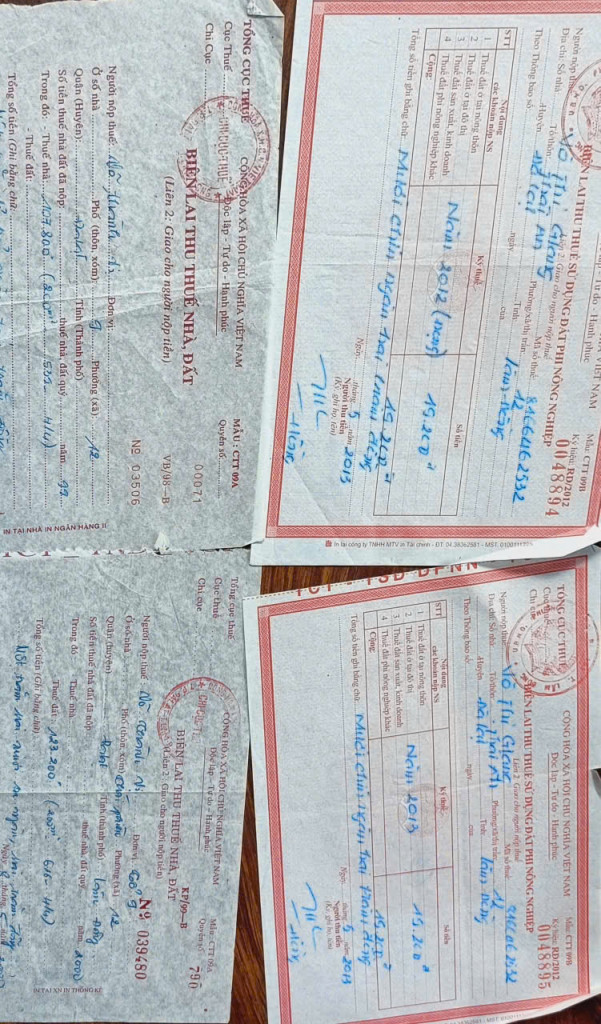 TỔNG CỤC THUẾ
Cục Thuế
Chi Cục
CỘNG HÒA XÃ HỘI CHỦ NGHĨA VIỆT NAM
Độc lập - Tự do - Hạnh phúc
MẪU: CTT 09A
BIÊN LAI THU THUẾ NHÀ, ĐẤT
(Liên 2: Giao cho người nộp tiền)
VB/98-B
Quyển số
00071
№ 03506
Người nộp thuế: Võ Thanh Đơn vị:
Ở số nhà Phố (thôn, xóm) Phường (xã) 12
Quận (Huyện): Dalat Tỉnh (Thành phố)
Số tiền thuế nhà đất đã nộp: thuế nhà, đất quý năm 99
Trong đó: Thuế nhà: 107.800đ
Thuế đất:
Tổng số tiền (Ghi bằng chữ)
IN TẠI NHÀ IN NGÂN HÀNG II
VIỆT NAM
do - Hạnh phúc
Mẫu: CTT 09B
Ký hiệu: RD/2012
BIÊN LAI THU THUẾ SỬ DỤNG ĐẤT PHI NÔNG NGHIỆP
0048894
Liên 2: Giao cho người nộp thuế
Người nộp thuế Võ Thị Mã số thuế
Địa chỉ: Số nhà Tổ/thôn: Thái An Phường/xã/thị trấn: 12
Huyện Đà Lạt Tỉnh: Lâm Đồng
Theo Thông báo số: ngày của
STT Nội dung các khoản nộp NS Kỳ thuế Số tiền
1 Thuế đất ở tại nông thôn
2 Thuế đất ở tại đô thị Năm 2012 19.200đ
3 Thuế đất sản xuất, kinh doanh
4 Thuế đất phi nông nghiệp khác
Cộng 19.200đ
Tổng số tiền ghi bằng chữ: Mười chín ngàn hai trăm đồng
Ngày tháng 5 năm 2013
Người thu tiền
(Ký, ghi họ tên)
In tại công ty TNHH MTV In Tài chính - ĐT: 04.38362581 - MST:
Tổng cục thuế
Cục thuế
Chi cục
CỘNG HÒA XÃ HỘI CHỦ NGHĨA VIỆT NAM
Độc lập - Tự do - Hạnh phúc
Mẫu: CTT 09A
Quyển số: 790
BIÊN LAI THU THUẾ NHÀ, ĐẤT
KP/99-B
(Liên 2: Giao cho người nộp tiền)
№ 039480
Người nộp thuế Võ Thanh Đơn vị
Ở số nhà Phố (thôn, xóm) Phường (xã) 12
Quận (huyện) Dalat Tỉnh (thành phố) Lâm Đồng
Số tiền thuế nhà đất đã nộp thuế nhà, đất quý năm 2000
Trong đó Thuế nhà
Thuế đất: 123.200đ
Tổng số tiền (Ghi bằng chữ)
Một trăm hai mươi ba ngàn hai trăm đồng
IN TẠI XN IN THỐNG KÊ
TỔNG CỤC THUẾ
CỘNG HÒA XÃ HỘI CHỦ NGHĨA VIỆT NAM
Độc lập - Tự do - Hạnh phúc
Mẫu: CTT 09B
Ký hiệu: RD/2012
BIÊN LAI THU THUẾ SỬ DỤNG ĐẤT PHI NÔNG NGHIỆP
0048895
Liên 2: Giao cho người nộp thuế
Người nộp thuế Võ Thị Mã số thuế
Địa chỉ: Số nhà Tổ/thôn Thái An Phường/xã/thị trấn: 12
Huyện Đà Lạt Tỉnh: Lâm Đồng
Theo Thông báo số: ngày của
STT Nội dung các khoản nộp NS Kỳ thuế Số tiền
1 Thuế đất ở tại nông thôn
2 Thuế đất ở tại đô thị Năm 2013 19.200đ
3 Thuế đất sản xuất, kinh doanh
4 Thuế đất phi nông nghiệp khác
Cộng 19.200đ
Tổng số tiền ghi bằng chữ: Mười chín ngàn hai trăm đồng
Ngày tháng 5 năm 2013
Người thu tiền
(Ký, ghi họ tên)